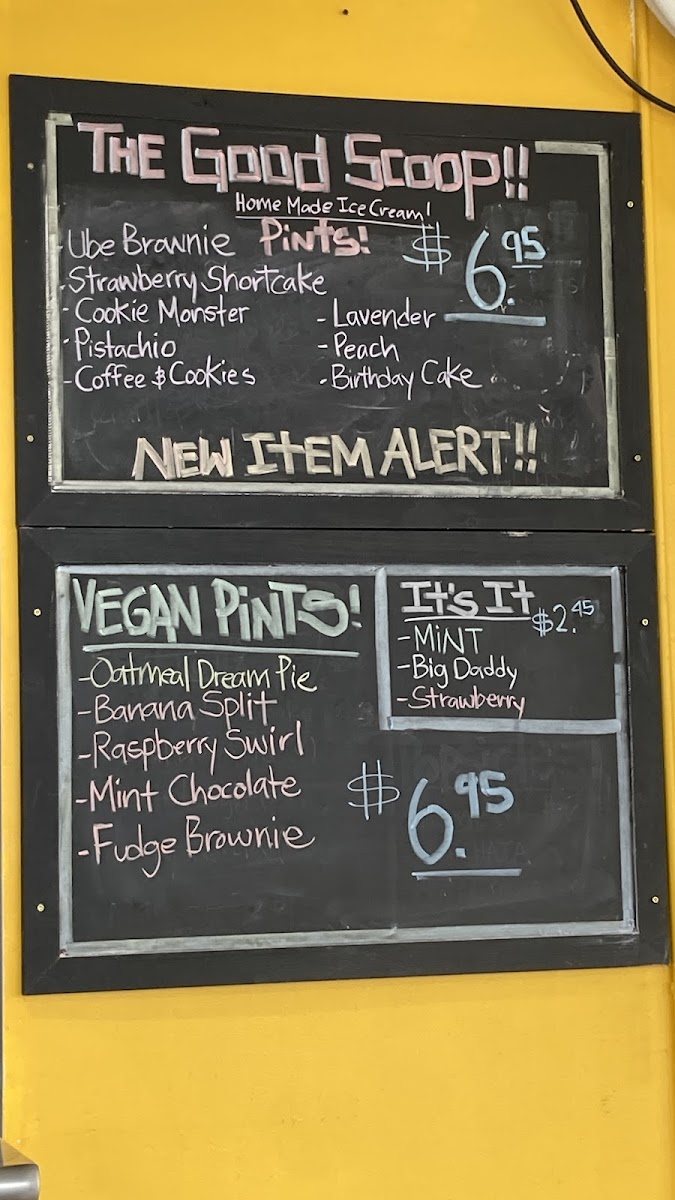 THE GOOD SCOOP!!
Home Made Ice Cream!
Pints!
$6.95
- Ube Brownie
- Strawberry Shortcake
- Cookie Monster
- Pistachio
- Coffee & Cookies
- Lavender
- Peach
- Birthday Cake
NEW ITEM ALERT!!
VEGAN PINTS!
- Oatmeal Dream Pie
- Banana Split
- Raspberry Swirl
- Mint Chocolate
- Fudge Brownie
$6.95
It's It
$2.45
- MINT
- Big Daddy
- Strawberry